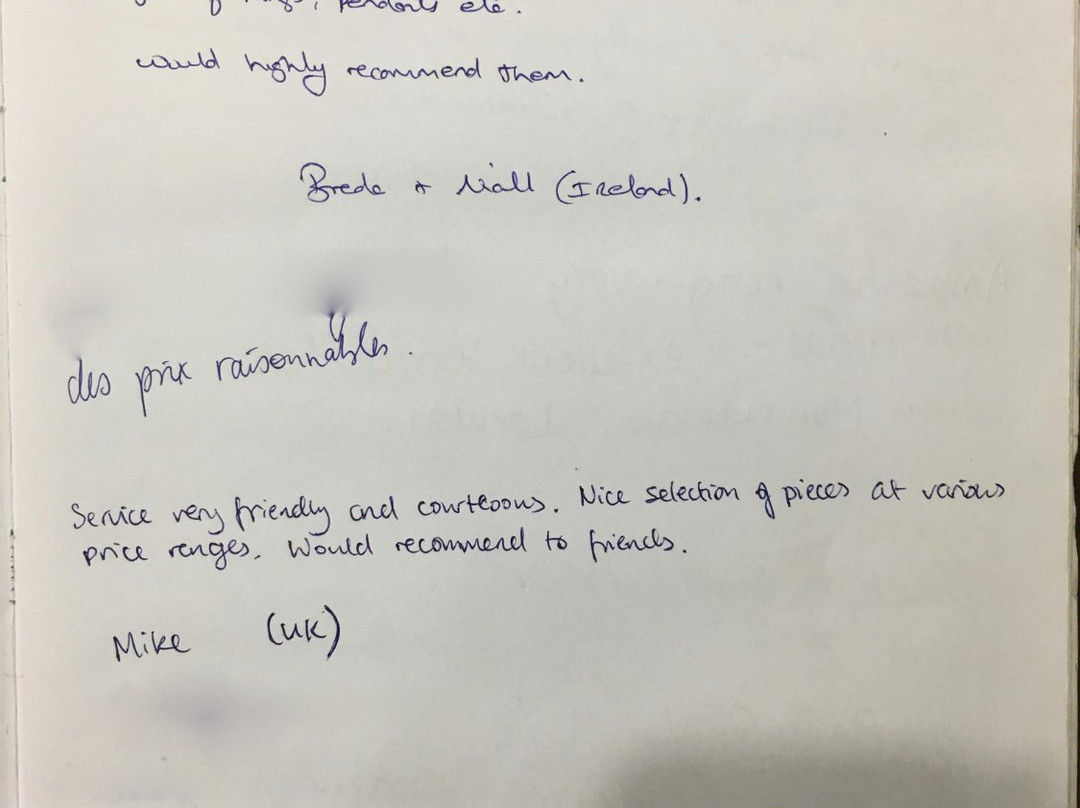 pendants etc.
would highly recommend them.
Breda & Niall (Ireland).
des prix raisonnables.
Service very friendly and courteous. Nice selection of pieces at various
price ranges. Would recommend to friends.
Mike (UK)